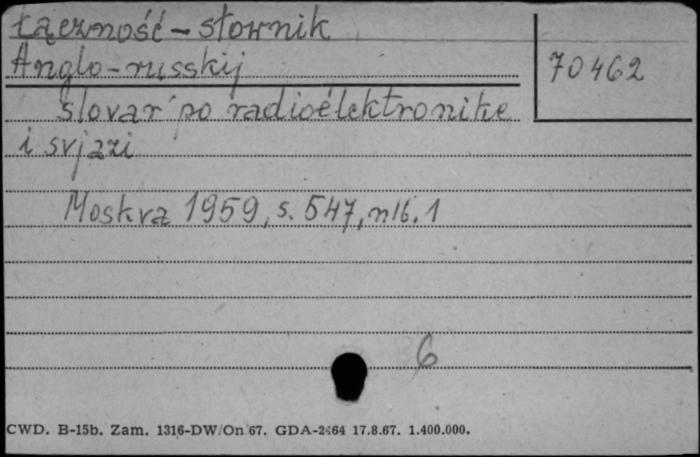 Łączność - słownik
Anglo-russkij
70462
slovar' po radioélektronike
i svjazi
Moskva 1959, s. 547, nlb. 1
6
CWD. B-15b. Zam. 1316-DW/On 67. GDA-2464 17.8.67. 1.400.000.